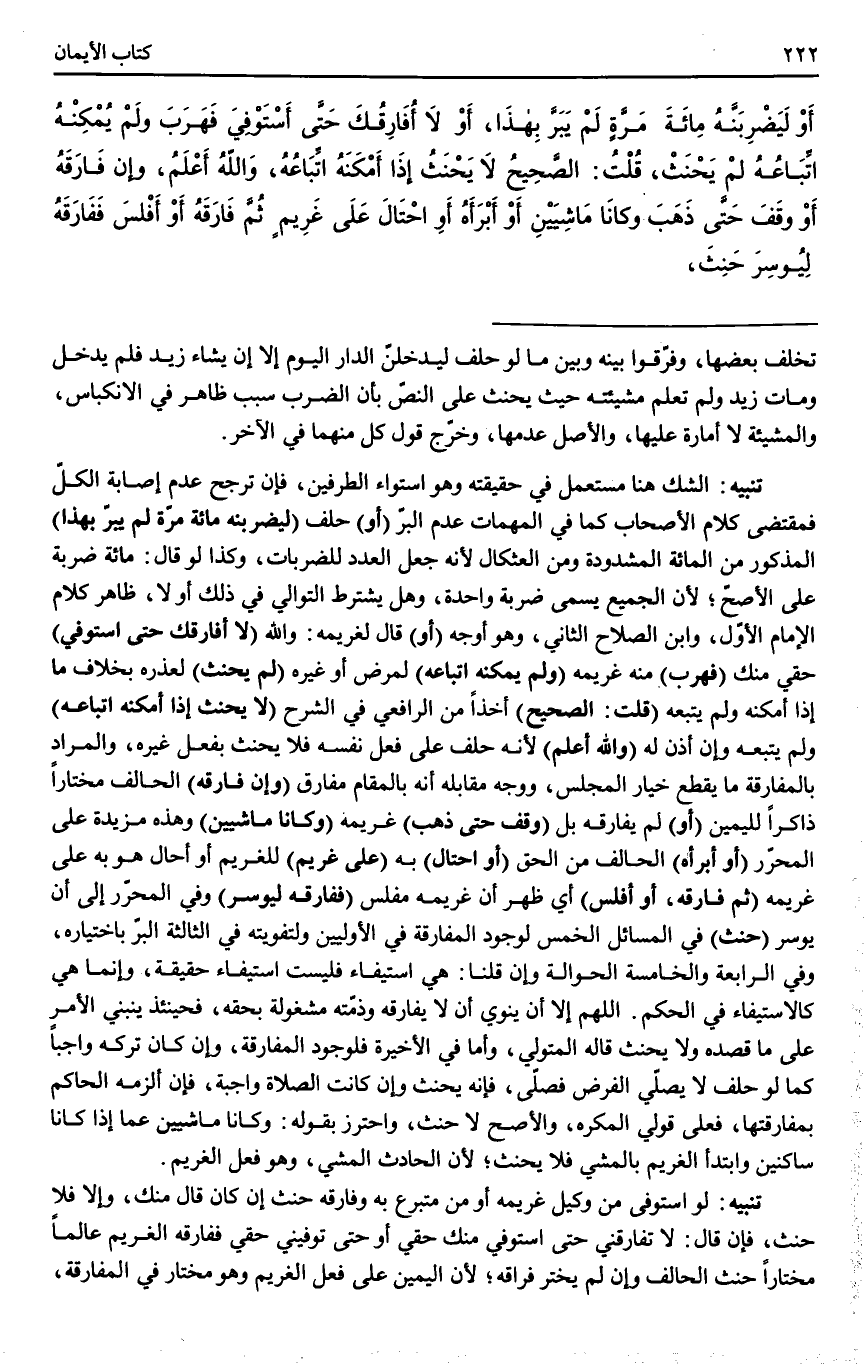 ٢٢٢ كتاب الأيمان
أَوْ لَيَضْرِبَنَّهُ مِائَةَ مَرَّةٍ لَمْ يَبَرَّ بِهٰذَا، أَوْ لَا أُفَارِقُكَ حَتَّى أَسْتَوْفِيَ فَهَرَبَ ولَمْ يُمْكِنْهُ
اتِّبَاعُهُ لمْ يَحْنَثْ، قُلْتُ: الصَّحِيحُ لَا يَحْنَثُ إِذَا أَمْكَنَهُ اتِّبَاعُهُ، وَاللّهُ أَعْلَمُ، وإن فَارَقَهُ
أَوْ وقَفَ حَتَّى ذَهَبَ وكانَا مَاشِيَيْنِ أَوْ أَبْرَأَهُ أَوِ احْتَالَ عَلَى غَرِيمٍ ثُمَّ فَارَقَهُ أَوْ أَفْلسَ فَفَارَقَهُ
لِيُوسِرَ حَنِثَ،
تخلف بعضها، وفرّقوا بينه وبين ما لو حلف ليدخلنّ الدار اليوم إلا إن يشاء زيد فلم يدخل
ومات زيد ولم تعلم مشيئته حيث يحنث على النصّ بأن الضرب سبب ظاهر في الانكباس،
والمشيئة لا أمارة عليها، والأصل عدمها، وخرّج قول كل منهما في الآخر.
تنبيه: الشك هنا مستعمل في حقيقته وهو استواء الطرفين، فإن ترجح عدم إصابة الكلّ
فمقتضى كلام الأصحاب كما في المهمات عدم البرّ (أو) حلف (ليضربنه مائة مرّة لم يبرّ بهذا)
المذكور من المائة المشدودة ومن العثكال لأنه جعل العدد للضربات، وكذا لو قال: مائة ضربة
على الأصحّ؛ لأن الجميع يسمى ضربة واحدة، وهل يشترط التوالي في ذلك أو لا، ظاهر كلام
الإمام الأوّل، وابن الصلاح الثاني، وهو أوجه (أو) قال لغريمه: والله (لا أفارقك حتى استوفي)
حقي منك (فهرب) منه غريمه (ولم يمكنه اتباعه) لمرض أو غيره (لم يحنث) لعذره بخلاف ما
إذا أمكنه ولم يتبعه (قلت: الصحيح) أخذاً من الرافعي في الشرح (لا يحنث إذا أمكنه اتباعه)
ولم يتبعه وإن أذن له (والله أعلم) لأنه حلف على فعل نفسه فلا يحنث بفعل غيره، والمراد
بالمفارقة ما يقطع خيار المجلس، ووجه مقابله أنه بالمقام مفارق (وإن فارقه) الحالف مختاراً
ذاكراً لليمين (أو) لم يفارقه بل (وقف حتى ذهب) غريمه (وكانا ماشيين) وهذه مزيدة على
المحرّر (أو أبرأه) الحالف من الحق (أو احتال) به (على غريم) للغريم أو أحال هو به على
غريمه (ثم فارقه، أو أفلس) أي ظهر أن غريمه مفلس (ففارقه ليوسر) وفي المحرّر إلى أن
يوسر (حنث) في المسائل الخمس لوجود المفارقة في الأوليين ولتفويته في الثالثة البرّ باختياره،
وفي الرابعة والخامسة الحوالة وإن قلنا: هي استيفاء فليست استيفاء حقيقة، وإنما هي
كالاستيفاء في الحكم. اللهم إلا أن ينوي أن لا يفارقه وذمّته مشغولة بحقه، فحينئذ ينبني الأمر
على ما قصده ولا يحنث قاله المتولي، وأما في الأخيرة فلوجود المفارقة، وإن كان تركه واجباً
كما لو حلف لا يصلّي الفرض فصلّى، فإنه يحنث وإن كانت الصلاة واجبة، فإن ألزمه الحاكم
بمفارقتها، فعلى قولي المكره، والأصح لا حنث، واحترز بقوله: وكانا ماشيين عما إذا كانا
ساكنين وابتدأ الغريم بالمشي فلا يحنث؛ لأن الحادث المشي، وهو فعل الغريم.
تنبيه: لو استوفى من وكيل غريمه أو من متبرع به وفارقه حنث إن كان قال منك، وإلا فلا
حنث، فإن قال: لا تفارقني حتى استوفي منك حقي أو حتى توفيني حقي ففارقه الغريم عالماً
مختاراً حنث الحالف وإن لم يختر فراقه؛ لأن اليمين على فعل الغريم وهو مختار في المفارقة،